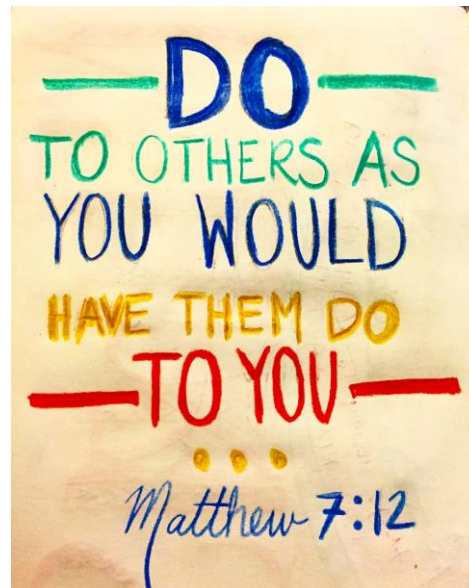 DO
TO OTHERS AS
YOU WOULD
HAVE THEM DO
TO YOU
...
Matthew 7:12